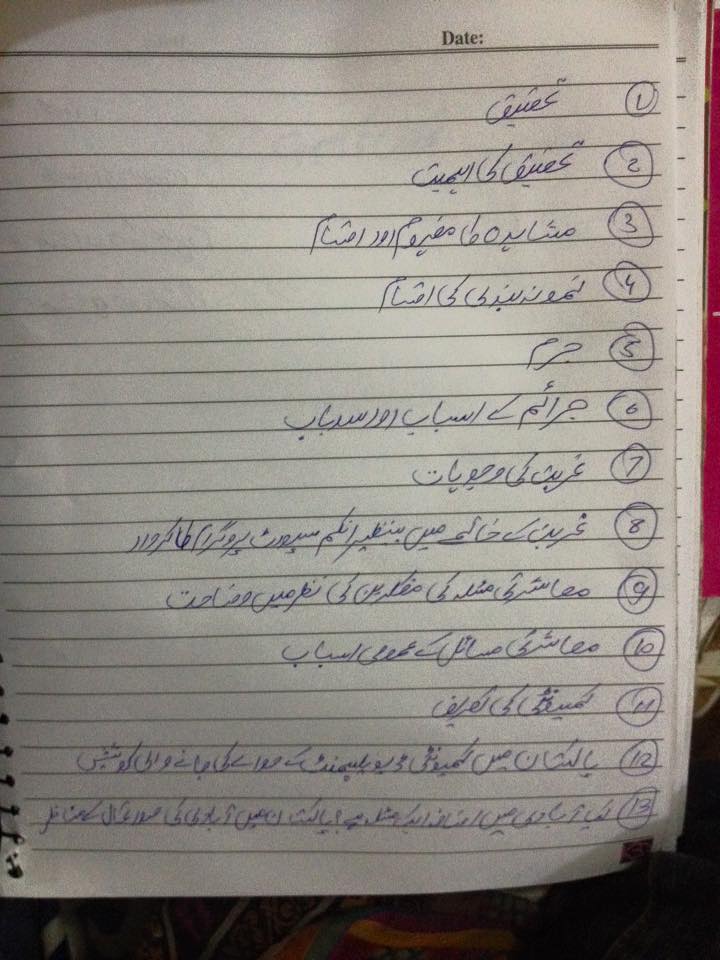 Date:
① تحقیق
② تحقیق کی اہمیت
③ مشاہدہ کا مفہوم اور اقسام
④ نمونہ بندی کی اقسام
⑤ جرم
⑥ جرائم کے اسباب اور سدباب
⑦ غربت کی وجوہات
⑧ غربت کے خاتمے میں بینظیر انکم سپورٹ پروگرام کا کردار
⑨ معاشرتی مسئلہ کی مفکرین کی نظر میں وضاحت
⑩ معاشرتی مسائل کے عمومی اسباب
⑪ کمیونٹی کی تعریف
⑫ پاکستان میں کمیونٹی ڈیویلپمنٹ کے حوالے کی جانے والی کوششیں
⑬ کیا آبادی میں اضافہ ایک مسئلہ ہے؟ پاکستان میں آبادی کی صورتحال کے